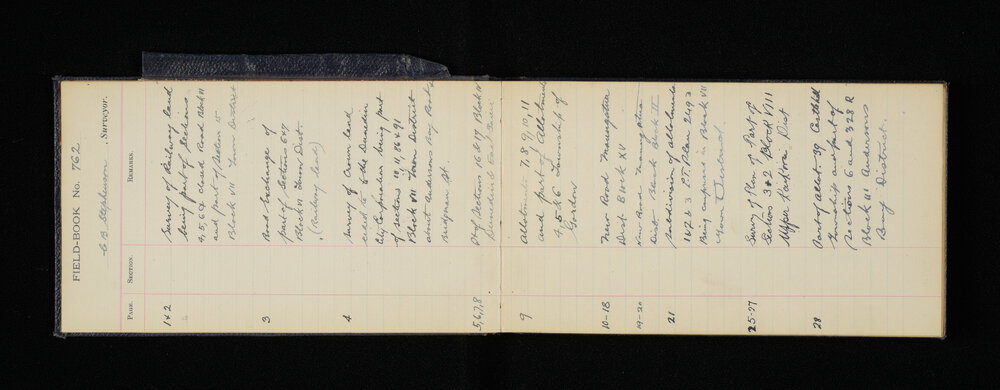 FIELD-BOOK No. 762
C. B. Stephenson, Surveyor.
PAGE. SECTION. REMARKS.
1&2 Survey of Railway land
being part of Sections
4, 5, 6 & closed Road Block VI
and part of Section 15
Block VII Town District
3 Road Exchange of
part of Sections 6 & 7
Block VI Town Dist.
(Railway land)
4 Survey of Crown land
ceded to the Dunedin
City Corporation being part
of sections 10, 11, 86 & 91
Block VII Town District
about Andersons Bay Road &
Bridgman St.
5,6,7,8 Sections 16 & 17 Block IV
Dunedin & East Taieri
9 Allotments 7, 8, 9, 10, 11
and part of Allotments
4, 5 & 6 Township of
Gordon
10-18 New Road Maungatua
Dist Block XV
19-20 New Road
Dist Block III
21 Subdivision of allotments
1 & 2 & 3 D.T. Plan 2493
Being in Block VII
Town District
25-27 Survey of Plan of Part of
Sections 3 & 2 Block VIII
Upper Harbour Dist
28 Part of allot. 39
Township and part of
Sections 6 and 328 R
Block III Andersons
Bay District.